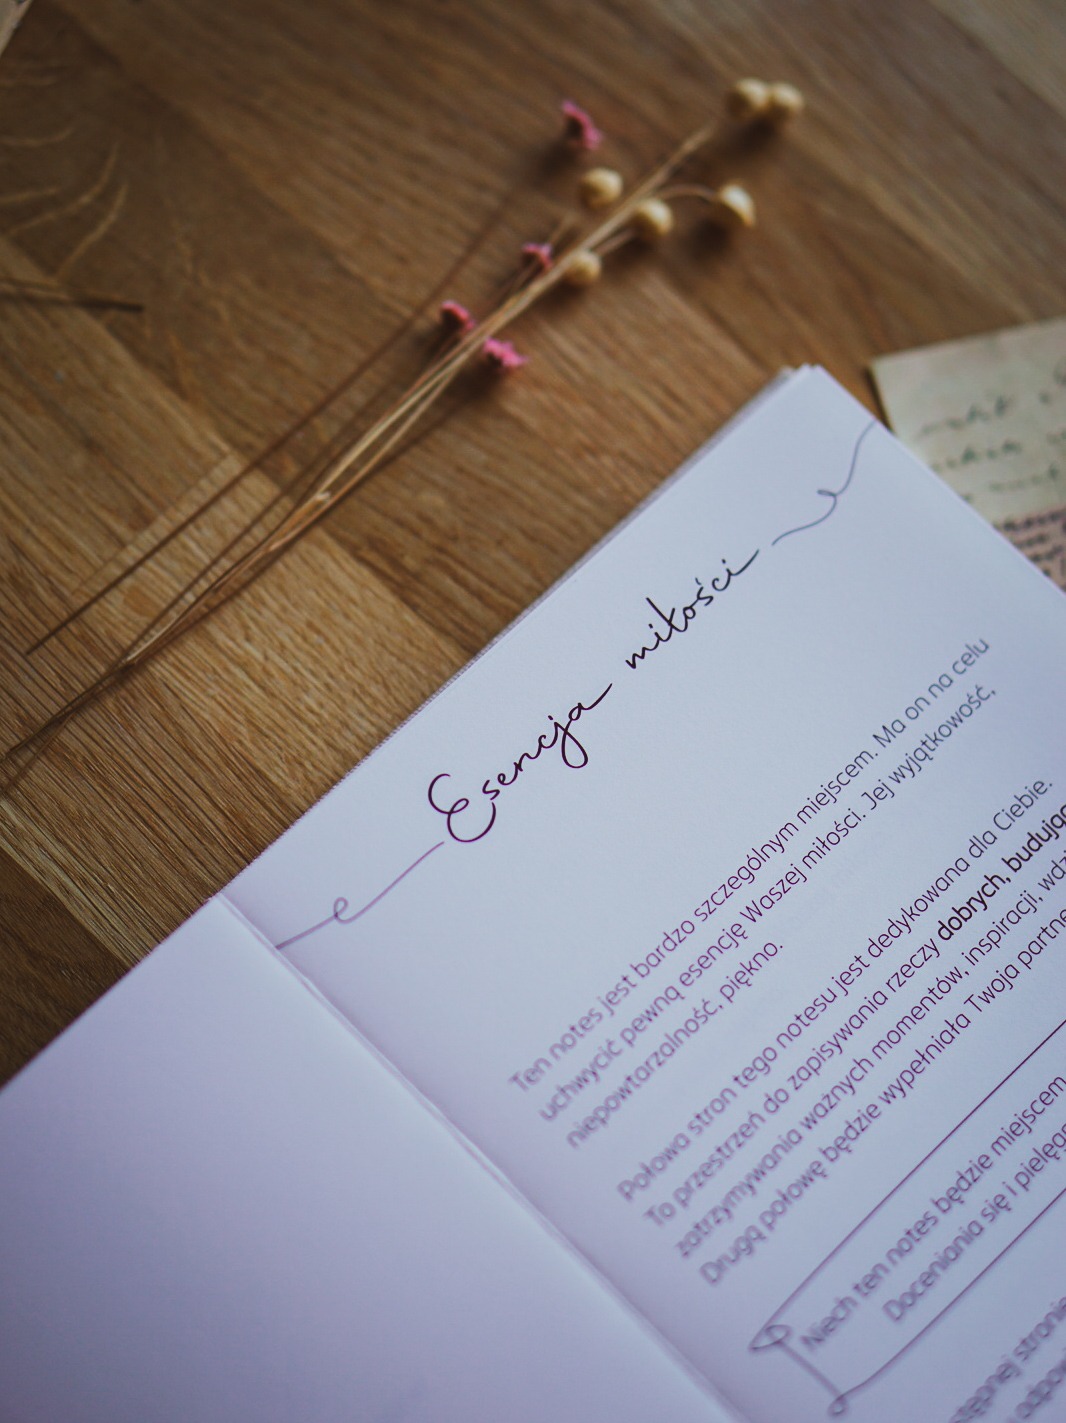 Esencja miłości
Ten notes jest bardzo szczególnym miejscem. Ma on na celu
uchwycić pewną esencję Waszej miłości. Jej wyjątkowość,
niepowtarzalność, piękno.
Połowa stron tego notesu jest dedykowana dla Ciebie.
To przestrzeń do zapisywania rzeczy dobrych, budując
zatrzymywania ważnych momentów, inspiracji, wdz
Drugą połowę będzie wypełniała Twoja partne
Niech ten notes będzie miejscem
Doceniania się i pielęg
stronie